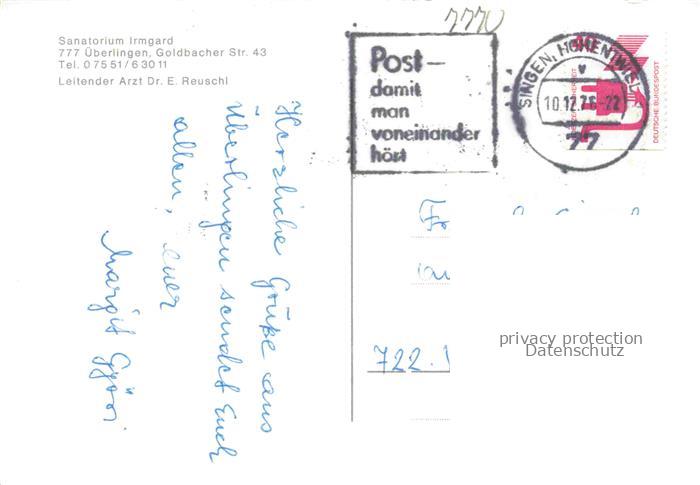 Sanatorium Irmgard
777 Überlingen, Goldbacher Str. 43
Tel. 07551/63011
Leitender Arzt Dr. E. Reuschl
Herzliche Grüße aus
Überlingen sendet Euch
allen, Euer
Margit
7770
Post-
damit
man
voneinander
hört
SINGEN, HOHENTWIEL
10.12.76-22
77
DEUTSCHE BUNDESPOST
722
privacy protection
Datenschutz